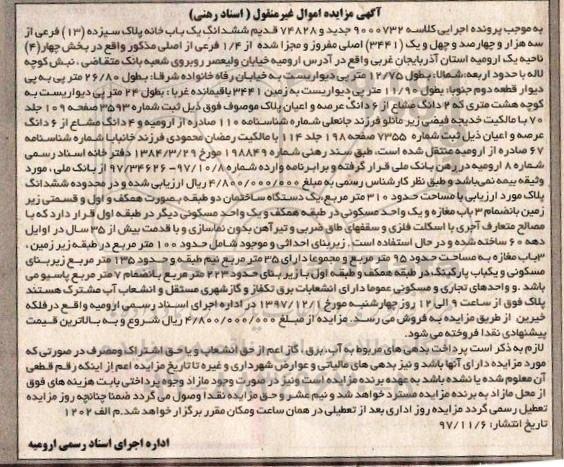 آگهی مزایده اموال غیرمنقول ( اسناد رهنی)
به موجب پرونده اجرایی کلاسه ۹۰۰۰۷۳۲ جدید و ۷۴۸۲۸ قدیم ششدانگ یک باب خانه پلاک سیزده (۱۳) فرعی از
سه هزار و چهارصد و چهل و یک (۳۴۴۱) اصلی مفروز و مجزا شده از ۱/۴ فرعی از اصلی مذکور واقع در بخش چهار(۴)
ناحیه یک ارومیه استان آذربایجان غربی واقع در آدرس ارومیه خیابان ولیعصر روبروی شعبه بانک متقاضی ، نبش کوچه
لاله با حدود اربعه: شمالا: بطول ۱۲/۷۵ متر پی دیواریست به خیابان رفاه خانواده شرقا: بطول ۲۶/۸۰ متر پی به پی
دیوار قطعه دوم جنوبا: بطول ۱۱/۹۰ متر پی دیواریست به زمین ۳۴۴۱ باقیمانده غربا : بطول ۲۴ متر پی دیواریست به
کوچه هشت متری که ۲ دانگ مشاع از ۶ دانگ عرصه و اعیان پلاک موصوف فوق ذیل ثبت شماره ۳۵۹۳ صفحه ۱۰۹ جلد
۷۰ با مالکیت خدیجه فیضی زیر مانلو فرزند جانعلی شماره شناسنامه ۱۱۰ صادره از ارومیه و ۴ دانگ مشاع از ۶ دانگ
عرصه و اعیان ذیل ثبت شماره ۷۳۵۵ صفحه ۱۹۸ جلد ۱۱۴ با مالکیت رمضان محمودی فرزند خانبابا شماره شناسنامه
۶۷ صادره از ارومیه منتقل شده است، طبق سند رهنی شماره ۱۹۸۸۴۹ مورخ ۱۳۸۴/۳/۲۹ دفتر خانه اسناد رسمی
شماره ۸ ارومیه در رهن بانک ملی قرار گرفته و برابر نامه وارده شماره ۹۷/۳۴۶۲۶-۹۷/۱۰/۸ از بانک ملی ، مورد
وثیقه بیمه نمی‌باشد و طبق نظر کارشناس رسمی به مبلغ ۴/۸۰۰/۰۰۰/۰۰۰ ریال ارزیابی شده و در محدوده ششدانگ
پلاک مورد ارزیابی با مساحت حدود ۳۱۰ متر مربع، یک دستگاه ساختمان دو طبقه بصورت همکف و اول و قسمتی زیر
زمین بانضمام ۳ باب مغازه و یک واحد مسکونی در طبقه همکف و یک واحد مسکونی دیگر در طبقه اول قرار دارد که با
مصالح متعارف آجری با اسکلت فلزی و سقفهای طاق ضربی و تیرآهن بدون نماسازی و با قدمت بیش از ۳۵ سال در اوایل
دهه ۶۰ ساخته شده و در حال استفاده است . زیربنای احداثی و موجود شامل حدود ۱۰۰ متر مربع در طبقه زیر زمین ،
۳باب مغازه به مساحت حدود ۹۵ متر مربع و مجموعا دارای ۳۵ متر مربع نیم طبقه و حدود ۱۳۵ متر مربع زیربنای
مسکونی و یکباب پارکینگ در طبقه همکف و طبقه اول با زیر بنای حدود ۲۲۳ متر مربع بانضمام ۷ متر مربع پاسیو می
باشد .و واحدهای تجاری و مسکونی عموما دارای انشعابات برق تکفاز و گازشهری مستقل و انشعاب آب مشترک هستند
پلاک فوق از ساعت ۹ الی ۱۲ روز چهارشنبه مورخ ۱۳۹۷/۱۲/۱ در اداره اجرای اسناد رسمی ارومیه واقع در فلکه
خیبرین از طریق مزایده به فروش می رسد. مزایده از مبلغ ۴/۸۰۰/۰۰۰/۰۰۰ ریال شروع و به بالاترین قیمت
پیشنهادی نقدا فروخته می شود.
لازم به ذکر است پرداخت بدهی های مربوط به آب، برق ، گاز اعم از حق انشعاب و یا حق اشتراک و مصرف در صورتی که
مورد مزایده دارای آنها باشد و نیز بدهی های مالیاتی و عوارض شهرداری و غیره تا تاریخ مزایده اعم از اینکه رقم قطعی
آن معلوم شده یا نشده باشد به عهده برنده مزایده است و نیز در صورت وجود مازاد وجوه پرداختی بابت هزینه های فوق
از محل مازاد به برنده مزایده مسترد خواهد شد و نیم عشر و حق مزایده نقدا وصول می گردد ضمنا چنانچه روز مزایده
تعطیل رسمی گردد مزایده روز اداری بعد از تعطیلی در همان ساعت و مکان مقرر برگزار خواهد شد. م الف ۱۲۰۲
تاریخ انتشار: ۹۷/۱۱/۶
اداره اجرای اسناد رسمی ارومیه